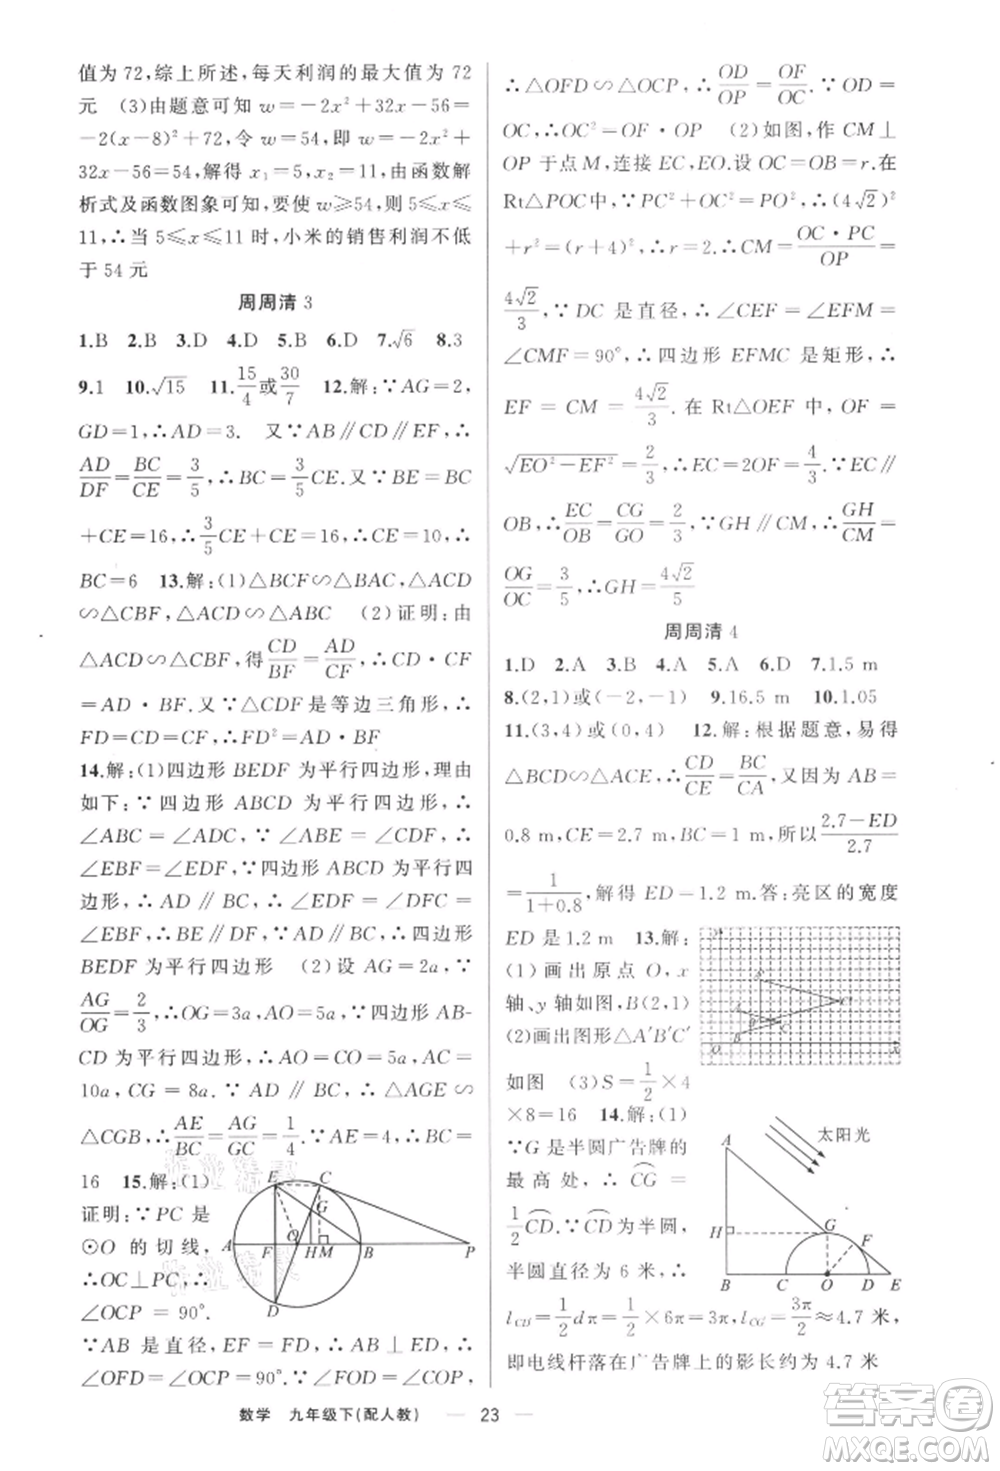 值为 72,综上所述,每天利润的最大值为 72
元 (3)由题意可知 w=-2x²+32x-56=
-2(x-8)²+72,令 w=54,即 w=-2x²+
32x-56=54,解得 x₁=5,x₂=11,由函数解
析式及函数图象可知,要使 w≥54,则 5≤x≤
11,∴当 5≤x≤11 时,小米的销售利润不低
于 54 元
周周清 3
1.B 2.B 3.D 4.D 5.B 6.D 7.√6 8.3
9.1 10.√15 11.15/4或30/7 12.解:∵AG=2,
GD=1,∴AD=3. 又∵AB∥CD∥EF,∴
AD/DF=BC/CE=3/5,∴BC=3/5CE.又∵BE=BC
+CE=16,∴3/5CE+CE=16,∴CE=10,∴
BC=6 13.解:(1)△BCF∽△BAC,△ACD
∽△CBF,△ACD∽△ABC (2)证明:由
△ACD∽△CBF,得CD/BF=AD/CF,∴CD·CF
=AD·BF.又∵△CDF是等边三角形,∴
FD=CD=CF,∴FD²=AD·BF
14.解:(1)四边形 BEDF 为平行四边形,理由
如下:∵四边形 ABCD 为平行四边形,∴
∠ABC=∠ADC,∵∠ABE=∠CDF,∴
∠EBF=∠EDF,∵四边形 ABCD 为平行四
边形,∴AD∥BC,∴∠EDF=∠DFC=
∠EBF,∴BE∥DF,∵DE∥BF,∴四边形
BEDF 为平行四边形 (2)设 AG=2a,∵
AG/OG=2/3,∴OG=3a,AO=5a,∵四边形 AB-
CD 为平行四边形,∴AO=CO=5a,AC=
10a,CG=8a.∵AD∥BC,∴△AGE∽
△CGB,∴AE/BC=AG/GC=1/4,∵AE=4,∴BC=
16 15.解:(1)
证明:∵PC 是
⊙O 的切线,
∴OC⊥PC,
∴∠OCP=90°.
∵AB 是直径,EF=FD,∴AB⊥ED,∴
∠OFD=∠OCP=90°.∵∠FOD=∠COP,
A E C G F O H M B P D
∴△OFD∽△OCP,∴OD/OP=OF/OC.∵OD=
OC,∴OC²=OF·OP (2)如图,作 CM⊥
OP 于点 M,连接 EC,EO.设 OC=OB=r.在
Rt△POC 中,∵PC²+OC²=PO²,∴(4√2)²
+r²=(r+4)²,∴r=2,∴CM=OC·PC/OP=
4√2/3.∵DC 是直径,∴∠CEF=∠EFM=
∠CMF=90°,∴四边形 EFMC 是矩形,∴
EF=CM=4√2/3.在 Rt△OEF 中,OF=
√EO²-EF²=2/3,∴EC=2OF=4/3.∵EC∥
OB,∴EC/OB=CG/GO=2/3,∵GH∥CM,∴GH/CM=
OG/OC=3/5,∴GH=4√2/5
周周清 4
1.D 2.A 3.B 4.A 5.A 6.D 7.1.5 m
8.(2,1)或(-2,-1) 9.16.5 m 10.1.05
11.(3,4)或(0,4) 12.解:根据题意,易得
△BCD∽△ACE,∴CD/CE=BC/CA,又因为 AB=
0.8 m,CE=2.7 m,BC=1 m,所以2.7-ED/2.7
=1/1+0.8,解得 ED=1.2 m.答:亮区的宽度
ED 是 1.2 m 13.解:
(1)画出原点 O,x
轴、y 轴如图,B(2,1)
(2)画出图形△A′B′C′
如图 (3)S=1/2×4
×8=16 14.解:(1)
∵G 是半圆广告牌的
最高处,∴CG=
1/2CD.∵CD为半圆,
半圆直径为 6 米,∴
A 太阳光 H G F B C O D E
l_CD=1/2dπ=1/2×6π=3π,l_CG=3π/2≈4.7 米,
即电线杆落在广告牌上的影长约为 4.7 米
数学 九年级下(配人教) — 23 —
答案圈
MXQE.COM